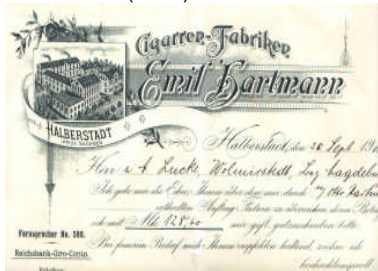 Cigarren-Fabriken
Emil Hartmann
HALBERSTADT
PROV. SACHSEN
Halberstadt, den 26 Sept 190
Herrn A. Lucke, Wolmirstedt, Bez. Magdeb
Ich gebe mir die Ehre, Ihnen über den mir durch Otto
ertheilten Auftrag Factura zu überreichen, deren Betrag
ich mit Mk 128,40 mir gefl. gutzuschreiben bitte.
Bei fernerem Bedarf mich Ihnen empfohlen haltend, zeichne ich
hochachtungsvoll
Fernsprecher No. 580.
Reichsbank-Giro-Conto.
Fabriken